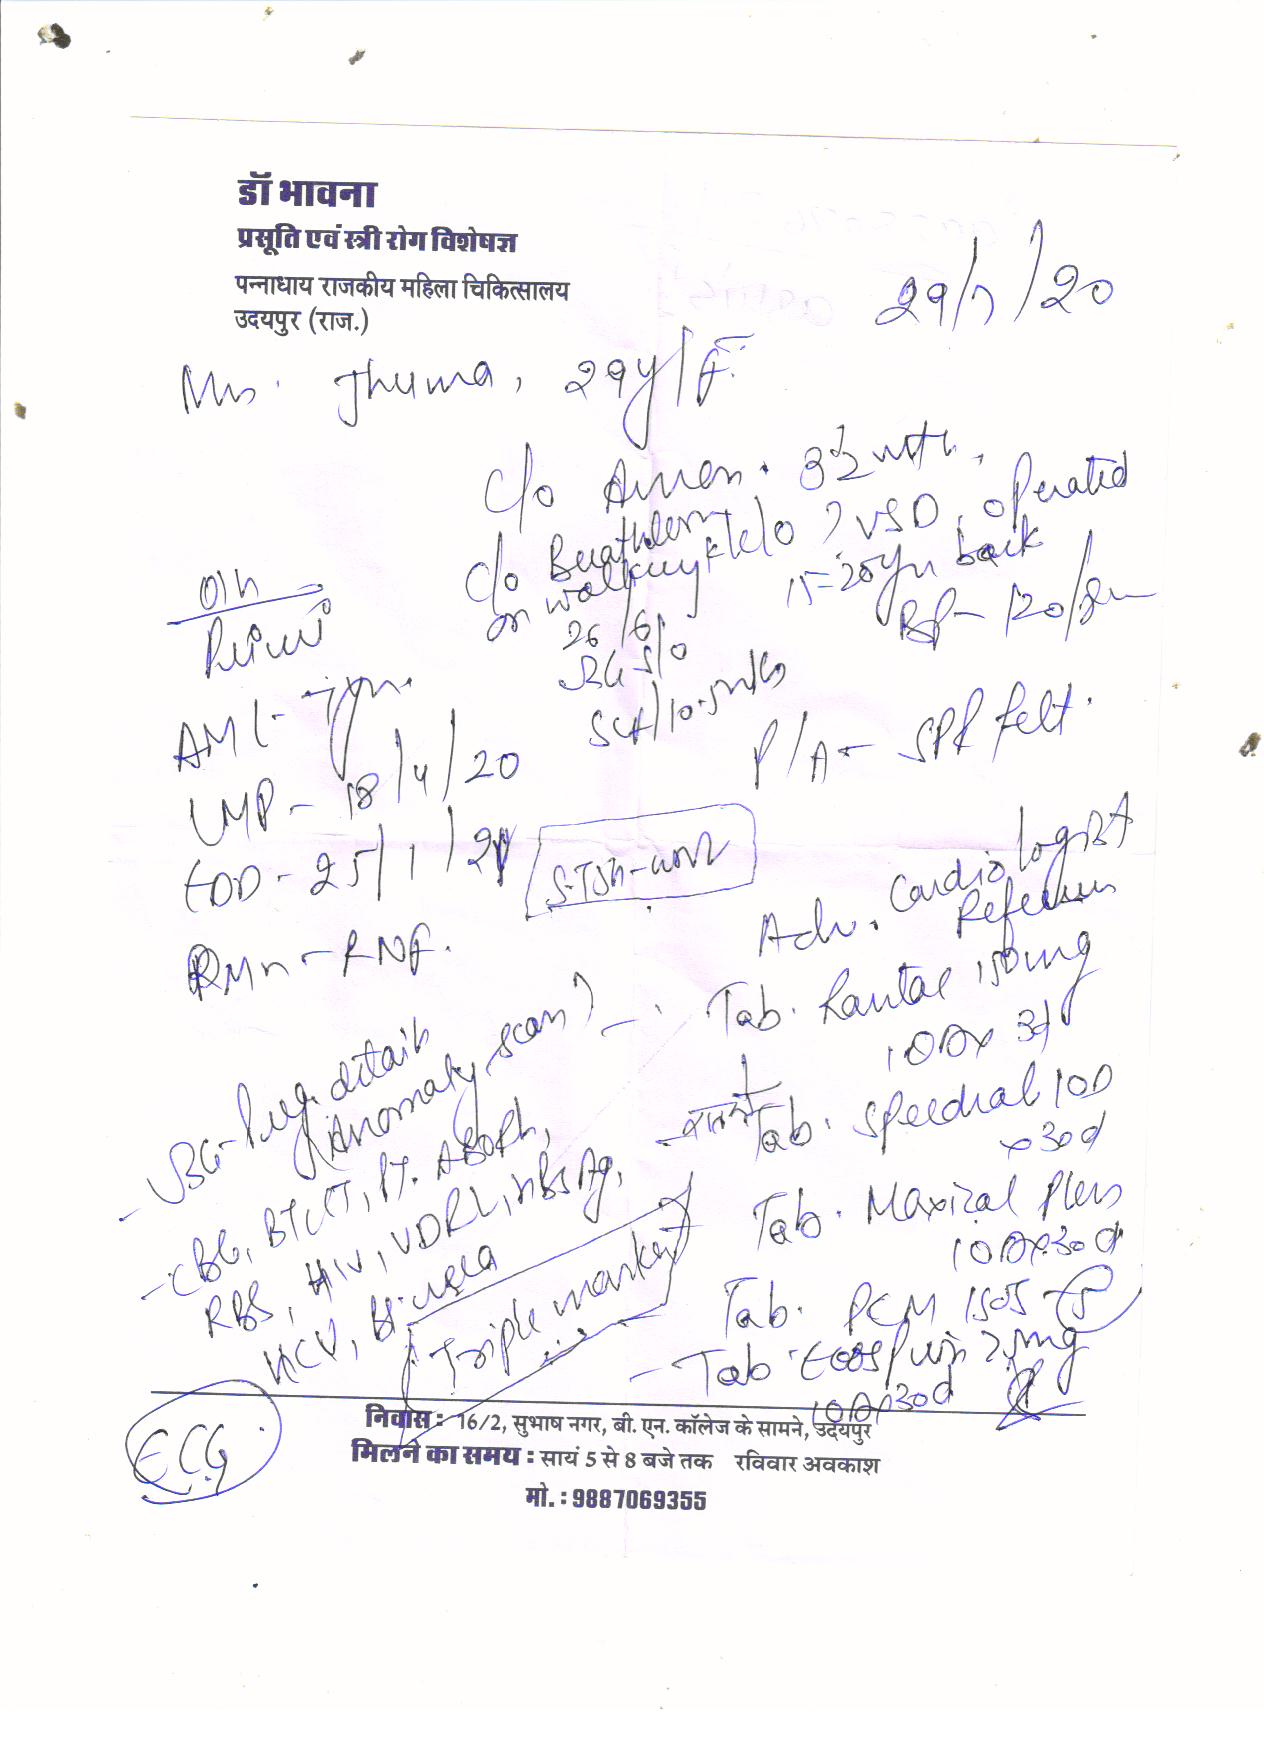 डॉ भावना
प्रसूति एवं स्त्री रोग विशेषज्ञ
पन्नाधाय राजकीय महिला चिकित्सालय
उदयपुर (राज.)
29/7/20
Mrs. Jhuma, 29y/F.
c/o Amen. 3½ mth,
c/o Breathlessn
on walking k/c/o ? VSD, operated
15-20yr back
O/H
Primi
26/6/
USG S/O
SLF/10.5wks
BP- 120/80
AM (-
LMP - 18/4/20
P/A - SPR felt.
EDD - 25/1/21
S.TSH-
RMH - RNF.
Adv. Cardiologist
Reference
Tab. Rantac 150mg
1 OD x 3d
- USG- Preg. details
(Anomaly scan)
Tab. Speedral 10D
x 30d
- CBC, BT, CT, PT. ABORh,
RBS, HIV, VDRL, HBsAg,
HCV, B. urea
Tab. Maxical Plus
1 OD x 30d
Triple marker
Tab. PCM
- Tab. Ecosprin 75mg
1 OD x 30d
ECG
निवास : 16/2, सुभाष नगर, बी. एन. कॉलेज के सामने, उदयपुर
मिलने का समय : सायं 5 से 8 बजे तक रविवार अवकाश
मो. : 9887069355